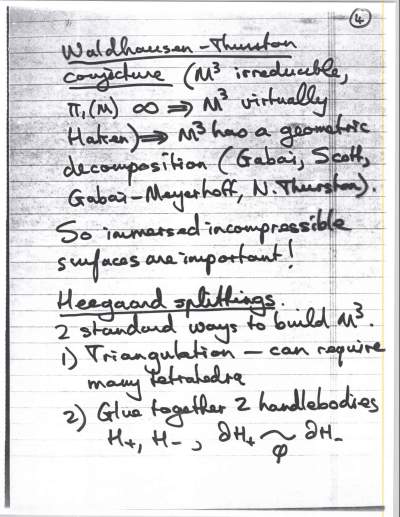 4
Waldhausen-Thurston
conjecture (M³ irreducible,
π₁(M) ∞ ⇒ M³ virtually
Haken) ⇒ M³ has a geometric
decomposition (Gabai, Scott,
Gabai-Meyerhoff, N.Thurston).
So immersed incompressible
surfaces are important!
Heegaard splittings.
2 standard ways to build M³.
1) Triangulation — can require
many tetrahedra
2) Glue together 2 handlebodies
H₊, H₋, ∂H₊ ~ ∂H₋
φ